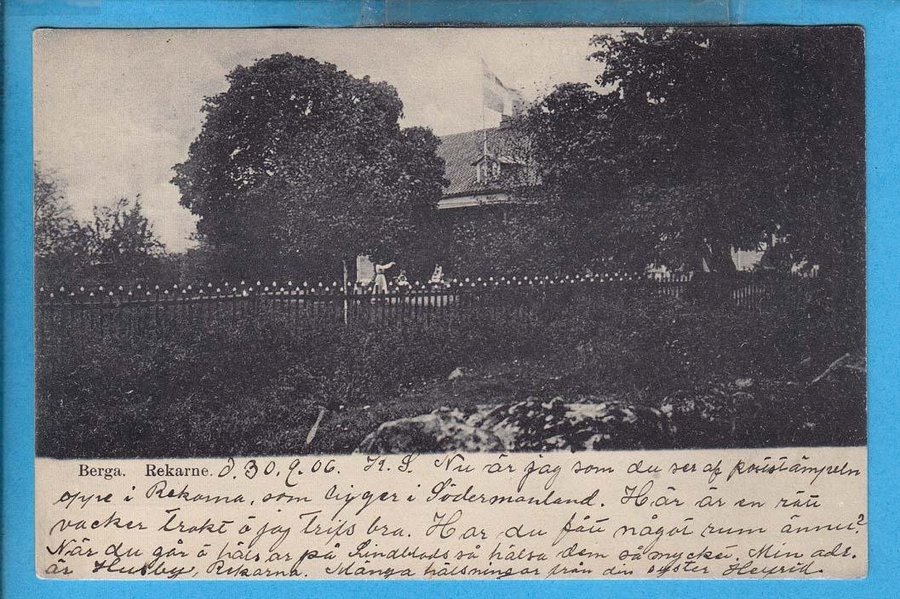 Berga. Rekarne. d. 30.9.06. K. S. Nu är jag som du ser af poststämpeln
oppe i Rekarna, som ligger i Södermanland. Här är en rätt
vacker trakt å jag trifs bra. Har du fått något rum ännu?
När du går å hälsar på Lindblads så hälsa dem så mycke. Min adr.
är Husby, Rekarna. Många hälsningar från din syster